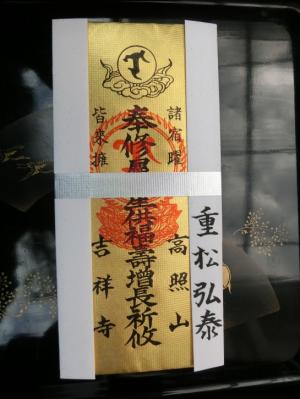 重松弘泰
諸宿曜
高照山
奉修星供福壽增長祈攸
皆來擁
吉祥寺